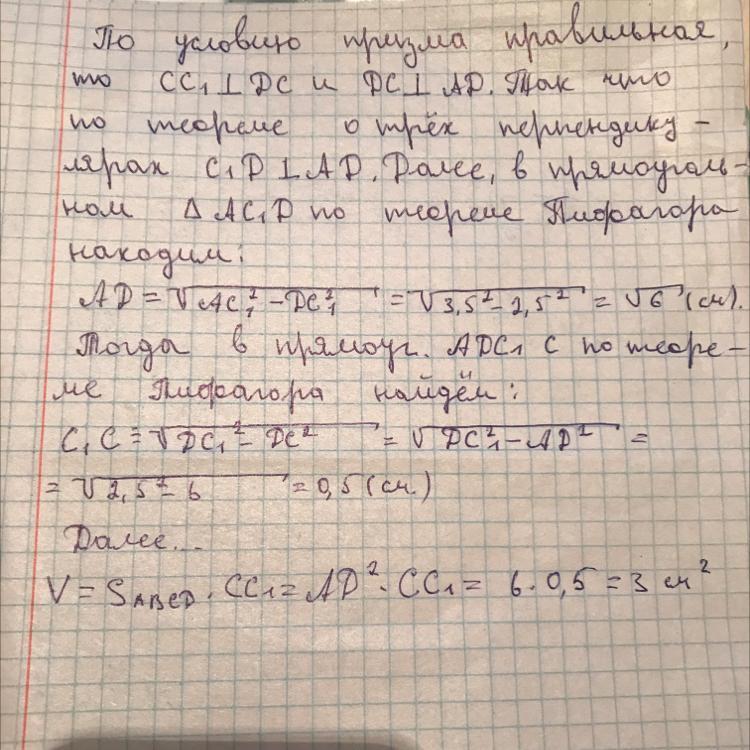 По условию призма правильная,
то CC₁⊥DC и DC⊥AD. Так что
по теореме о трёх перпендику-
лярах C₁D⊥AD. Далее, в прямоуголь-
ном ΔAC₁D по теореме Пифагора
находим:
AD = √(AC₁² - DC₁²) = √(3,5² - 2,5²) = √6 (см).
Тогда в прямоуг. ΔDC₁C по теоре-
ме Пифагора найдём:
C₁C = √(DC₁² - DC²) = √(DC₁² - AD²) =
= √(2,5² - 6) = 0,5 (см.)
Далее...
V = S_ABCD · CC₁ = AD² · CC₁ = 6 · 0,5 = 3 см²